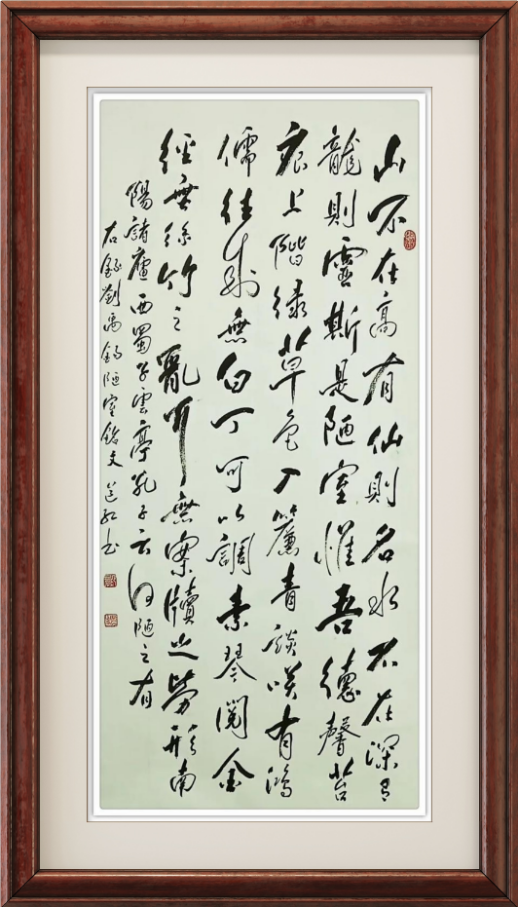 山不在高有仙則名水不在深有
龍則靈斯是陋室惟吾德馨苔
痕上階綠草色入簾青談笑有鴻
儒往來無白丁可以調素琴閱金
經無絲竹之亂耳無案牘之勞形南
陽諸廬西蜀子雲亭孔子云何陋之有
右錄劉禹錫陋室銘文